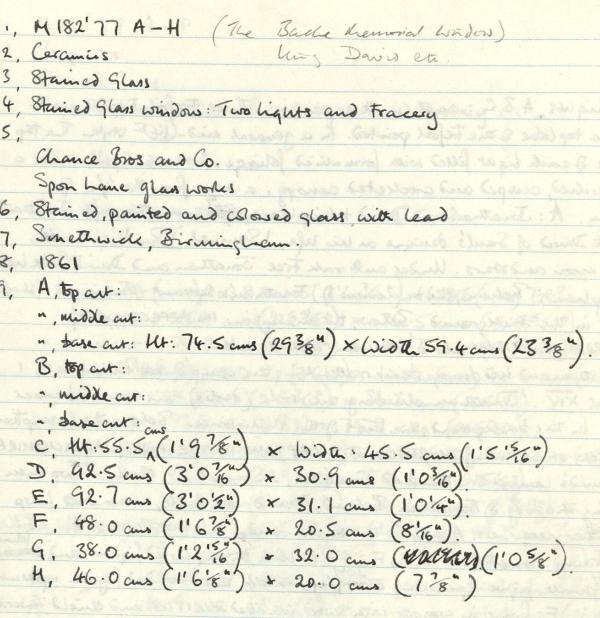 1, M182'77 A-H (The Bache Memorial Window)
2, Ceramics King David etc.
3, Stained Glass
4, Stained Glass window: Two lights and Tracery
5,
Chance Bros and Co.
Spon Lane glass works
6, Stained, painted and coloured glass, with lead
7, Smethwick, Birmingham.
8, 1861
9, A, top cut:
", middle cut:
", base cut: Ht: 74.5 cms (29 3/8") x Width 59.4 cms (23 3/8").
B, top cut:
", middle cut:
", base cut:
C, Ht: 55.5 cms (1'9 7/8") x Width. 45.5 cms (1'5 15/16")
D, 92.5 cms (3'0 7/16") x 30.9 cms (1'0 3/16").
E, 92.7 cms (3'0 1/2") x 31.1 cms (1'0 1/4").
F, 48.0 cms (1'6 7/8") x 20.5 cms (8 1/16").
G, 38.0 cms (1'2 15/16") x 32.0 cms (1'0 5/8").
H, 46.0 cms (1'6 1/8") x 20.0 cms (7 7/8")